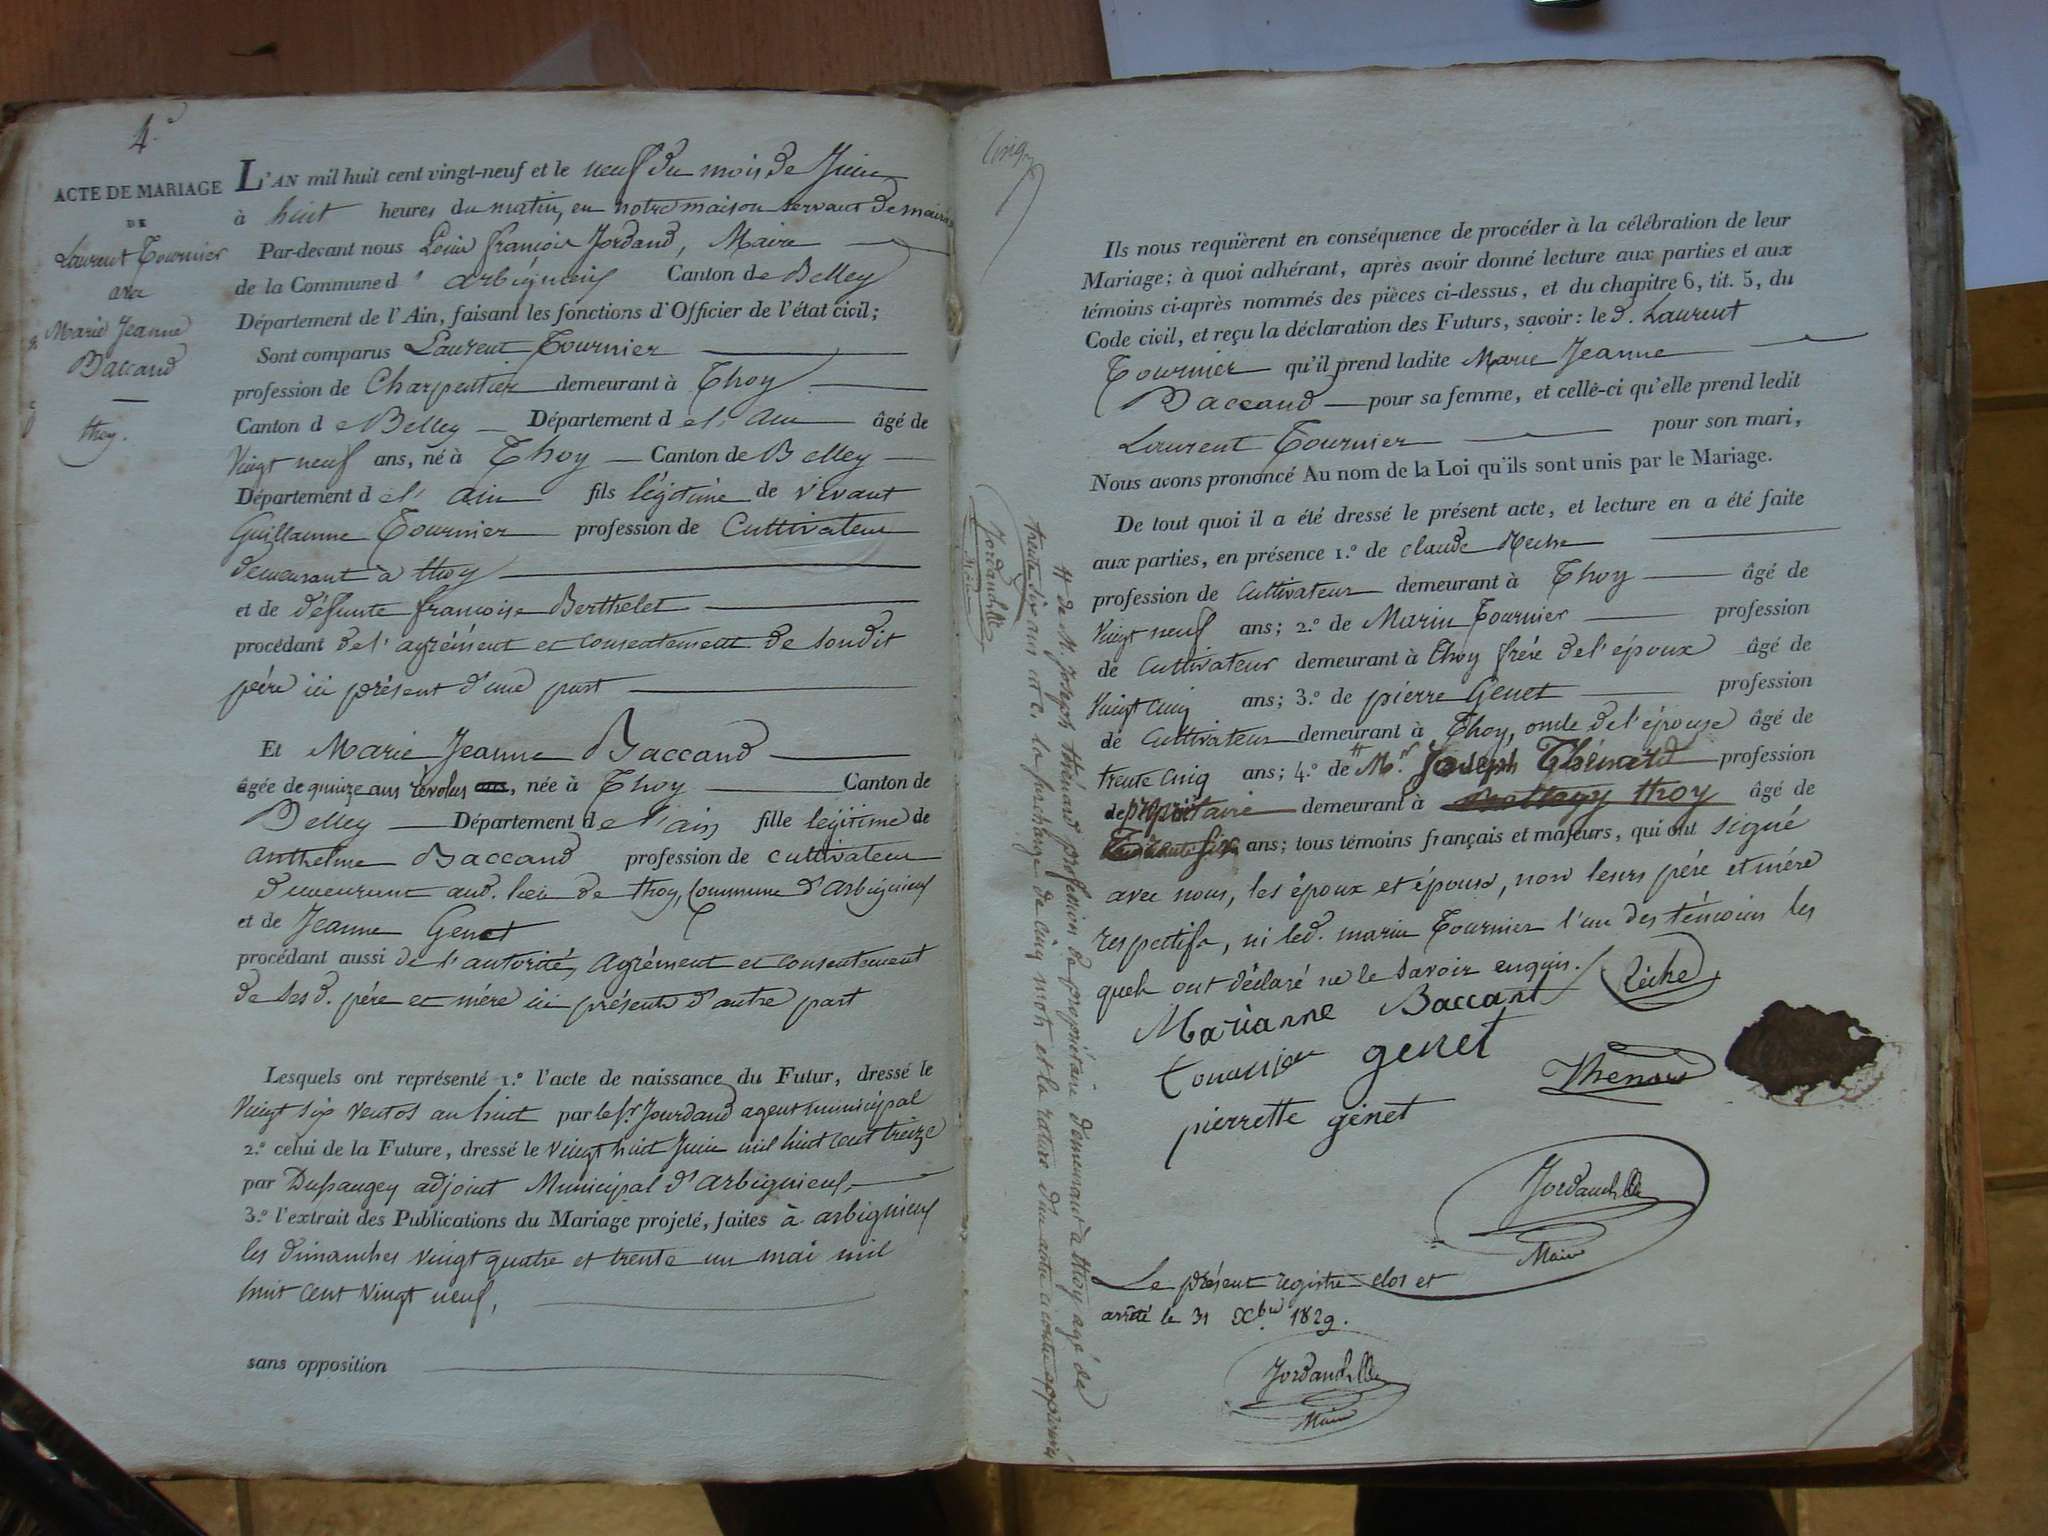 4.e
ACTE DE MARIAGE
DE
Laurent Tournier
avec
Marie Jeanne
Baccand
thoy.
L'AN mil huit cent vingt-neuf et le neuf du mois de Juin
à huit heures du matin, en notre maison servant de mairie
Par-devant nous Louis françois Jordand, Maire
de la Commune d' arbignieu Canton de Belley
Département de l'Ain, faisant les fonctions d'Officier de l'état civil;
Sont comparus Laurent Tournier
profession de Charpentier demeurant à Thoy
Canton de Belley Département de l'ain âgé de
vingt neuf ans, né à Thoy Canton de Belley
Département de l'ain fils légitime de vivant
Guillaume Tournier profession de Cultivateur
demeurant à thoy
et de défunte françoise Berthelet
procédant de l'agrément et consentement de sondit
père ici présent d'une part
Et Marie Jeanne Baccand
âgée de quinze ans révolus ans, née à Thoy Canton de
Belley Département de l'ain fille légitime de
anthelme Baccand profession de cultivateur
demeurant aud. lieu de thoy, Commune d'arbignieu
et de Jeanne Genet
procédant aussi de l'autorité, agrément et consentement
de ses d. père et mère ici présents d'autre part
Lesquels ont représenté 1.º l'acte de naissance du Futur, dressé le
vingt six ventos an huit par le sr. Jourdand agent municipal
2.º celui de la Future, dressé le vingt huit Juin mil huit cent treize
par Dupaugey adjoint Municipal d'arbignieu
3.º l'extrait des Publications du Mariage projeté, faites à arbignieu
les dimanches vingt quatre et trente un mai mil
huit cent vingt neuf,
sans opposition
Ils nous requièrent en conséquence de procéder à la célébration de leur
Mariage; à quoi adhérant, après avoir donné lecture aux parties et aux
témoins ci-après nommés des pièces ci-dessus, et du chapitre 6, tit. 5, du
Code civil, et reçu la déclaration des Futurs, savoir: le d. Laurent
Tournier qu'il prend ladite Marie Jeanne
Baccand pour sa femme, et celle-ci qu'elle prend ledit
Laurent Tournier pour son mari,
Nous avons prononcé Au nom de la Loi qu'ils sont unis par le Mariage.
De tout quoi il a été dressé le présent acte, et lecture en a été faite
aux parties, en présence 1.º de claude
profession de cultivateur demeurant à Thoy âgé de
vingt neuf ans; 2.º de Marin Tournier profession
de Cultivateur demeurant à thoy frère de l'époux âgé de
vingt cinq ans; 3.º de pierre Genet profession
de Cultivateur demeurant à Thoy, oncle de l'épouse âgé de
trente cinq ans; 4.º de # Mr. Joseph Thénard profession
de propriétaire demeurant à thoy âgé de
trente six ans; tous témoins français et majeurs, qui ont signé
avec nous, les époux et épouse, non leurs père et mère
respectifs, ni led. marin Tournier l'un des témoins les
quels ont déclaré ne le savoir enquis.
Marianne Baccant
genet
Thenard
pierrette genet
Jordand
Maire
Le présent registre clos et
arrêté le 31 Xbre 1829.
Jordand
Maire
# de M. Joseph thénard profession de propriétaire demeurant à thoy agé de
trente six ans etc. la surcharge de cinq mots et la rature d'un autre ci contre approuvés
Jordand
Maire